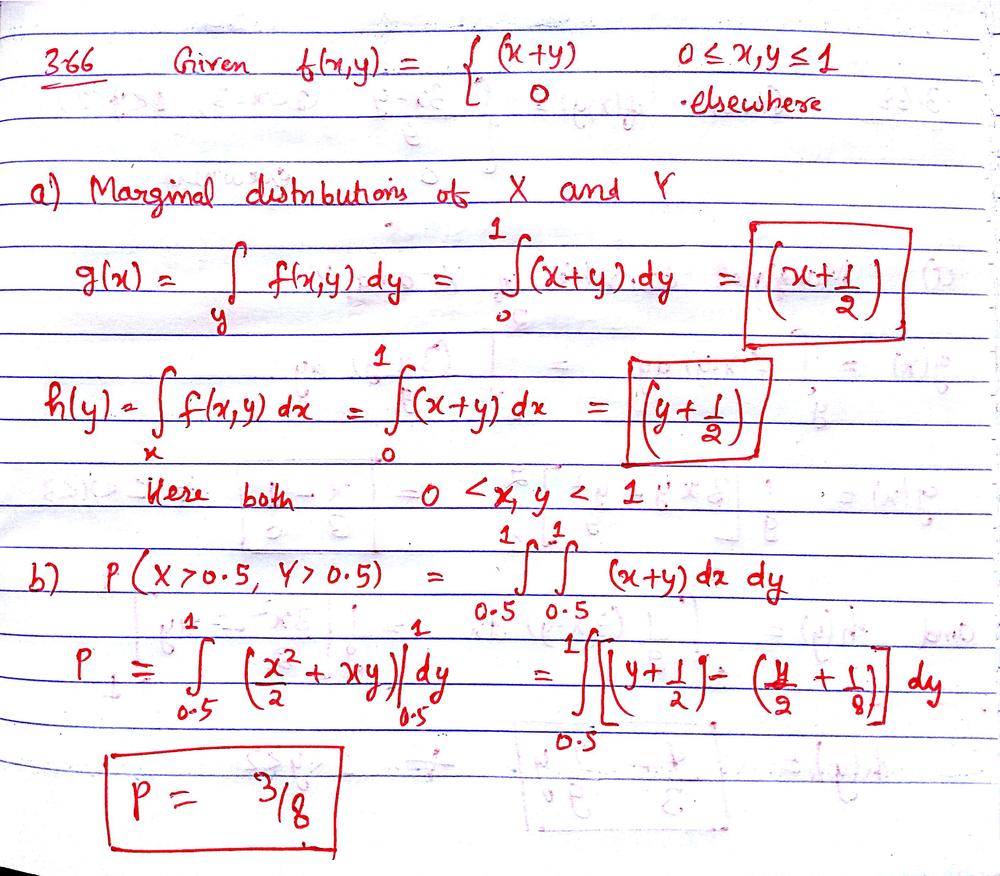 3.66 Given f(x,y) = { (x+y) 0 ≤ x,y ≤ 1
0 elsewhere
a) Marginal distributions of X and Y
g(x) = ∫_y f(x,y) dy = ∫_0^1 (x+y).dy = (x + 1/2)
h(y) = ∫_x f(x,y) dx = ∫_0^1 (x+y) dx = (y + 1/2)
Here both 0 < x, y < 1
b) P(X > 0.5, Y > 0.5) = ∫_0.5^1 ∫_0.5^1 (x+y) dx dy
P = ∫_0.5^1 (x²/2 + xy)|_0.5^1 dy = ∫_0.5^1 [(y + 1/2) - (y/2 + 1/8)] dy
P = 3/8